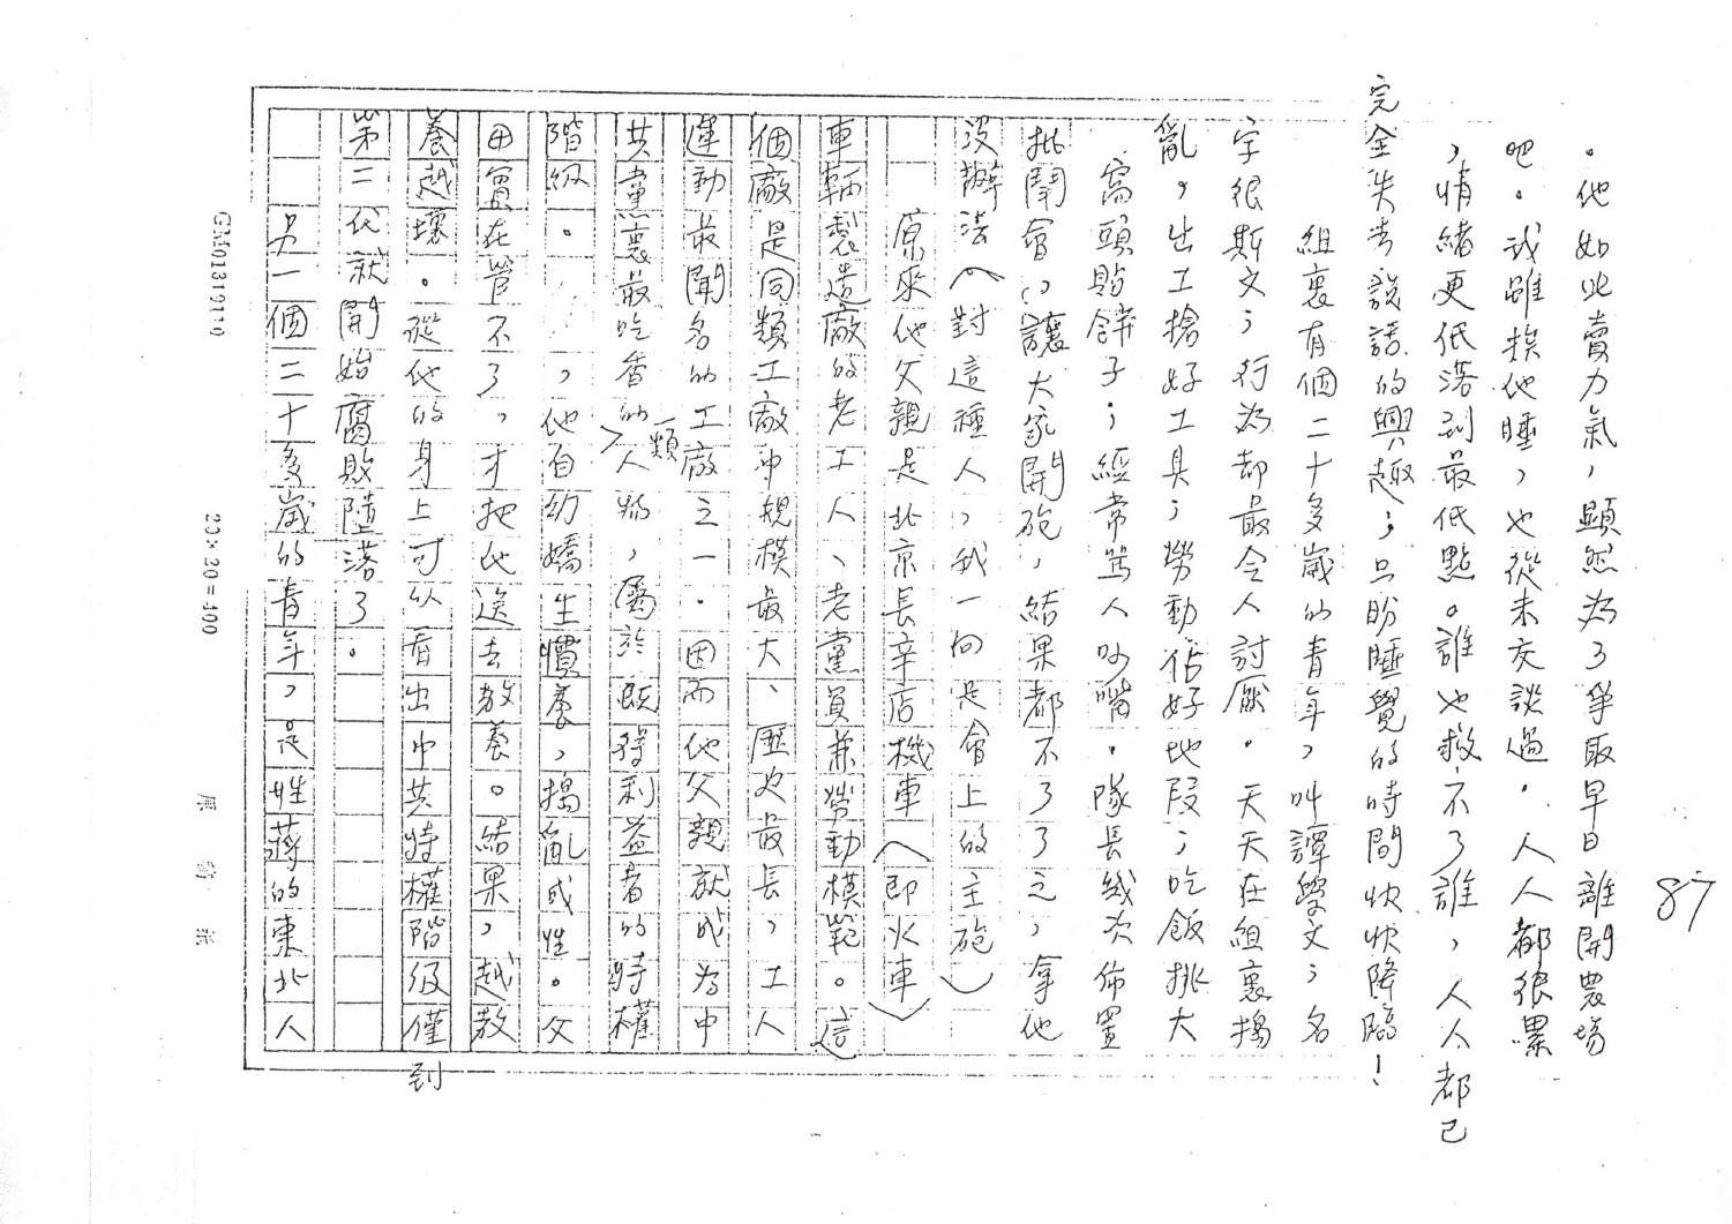 87
。他如此賣力氣，顯然為了爭取早日離開農場
吧。我雖挨他睡，也從未交談過。人人都很累
，情緒更低落到最低點。誰也救不了誰，人人都已
完全失去說話的興趣；只盼睡覺的時間快快降臨！
組裏有個二十多歲的青年，叫譚學文；名
字很斯文；行為却最令人討厭。天天在組裏搗
亂，出工搶好工具；勞動佔好地段；吃飯挑大
窩頭貼餅子；經常罵人吵嘴。隊長幾次佈置
批鬥會，讓大家開砲，結果都不了了之，拿他
沒辦法（對這種人，我一向是會上的主砲）
原來他父親是北京長辛店機車（即火車）
車輛製造廠的老工人、老黨員兼勞動模範。這
個廠是同類工廠中規模最大、歷史最長，工人
運動最聞名的工廠之一。因而他父親就成為中
共黨裏最吃香的一類人物，屬於既得利益者的特權
階級。，他自幼嬌生慣養，搗亂成性。父
母實在管不了，才把他送去教養。結果，越教
養越壞。從他的身上可以看出中共特權階級僅到
第二代就開始腐敗墮落了。
另一個二十多歲的青年，是姓蔣的東北人
GM01319110
20×30=400